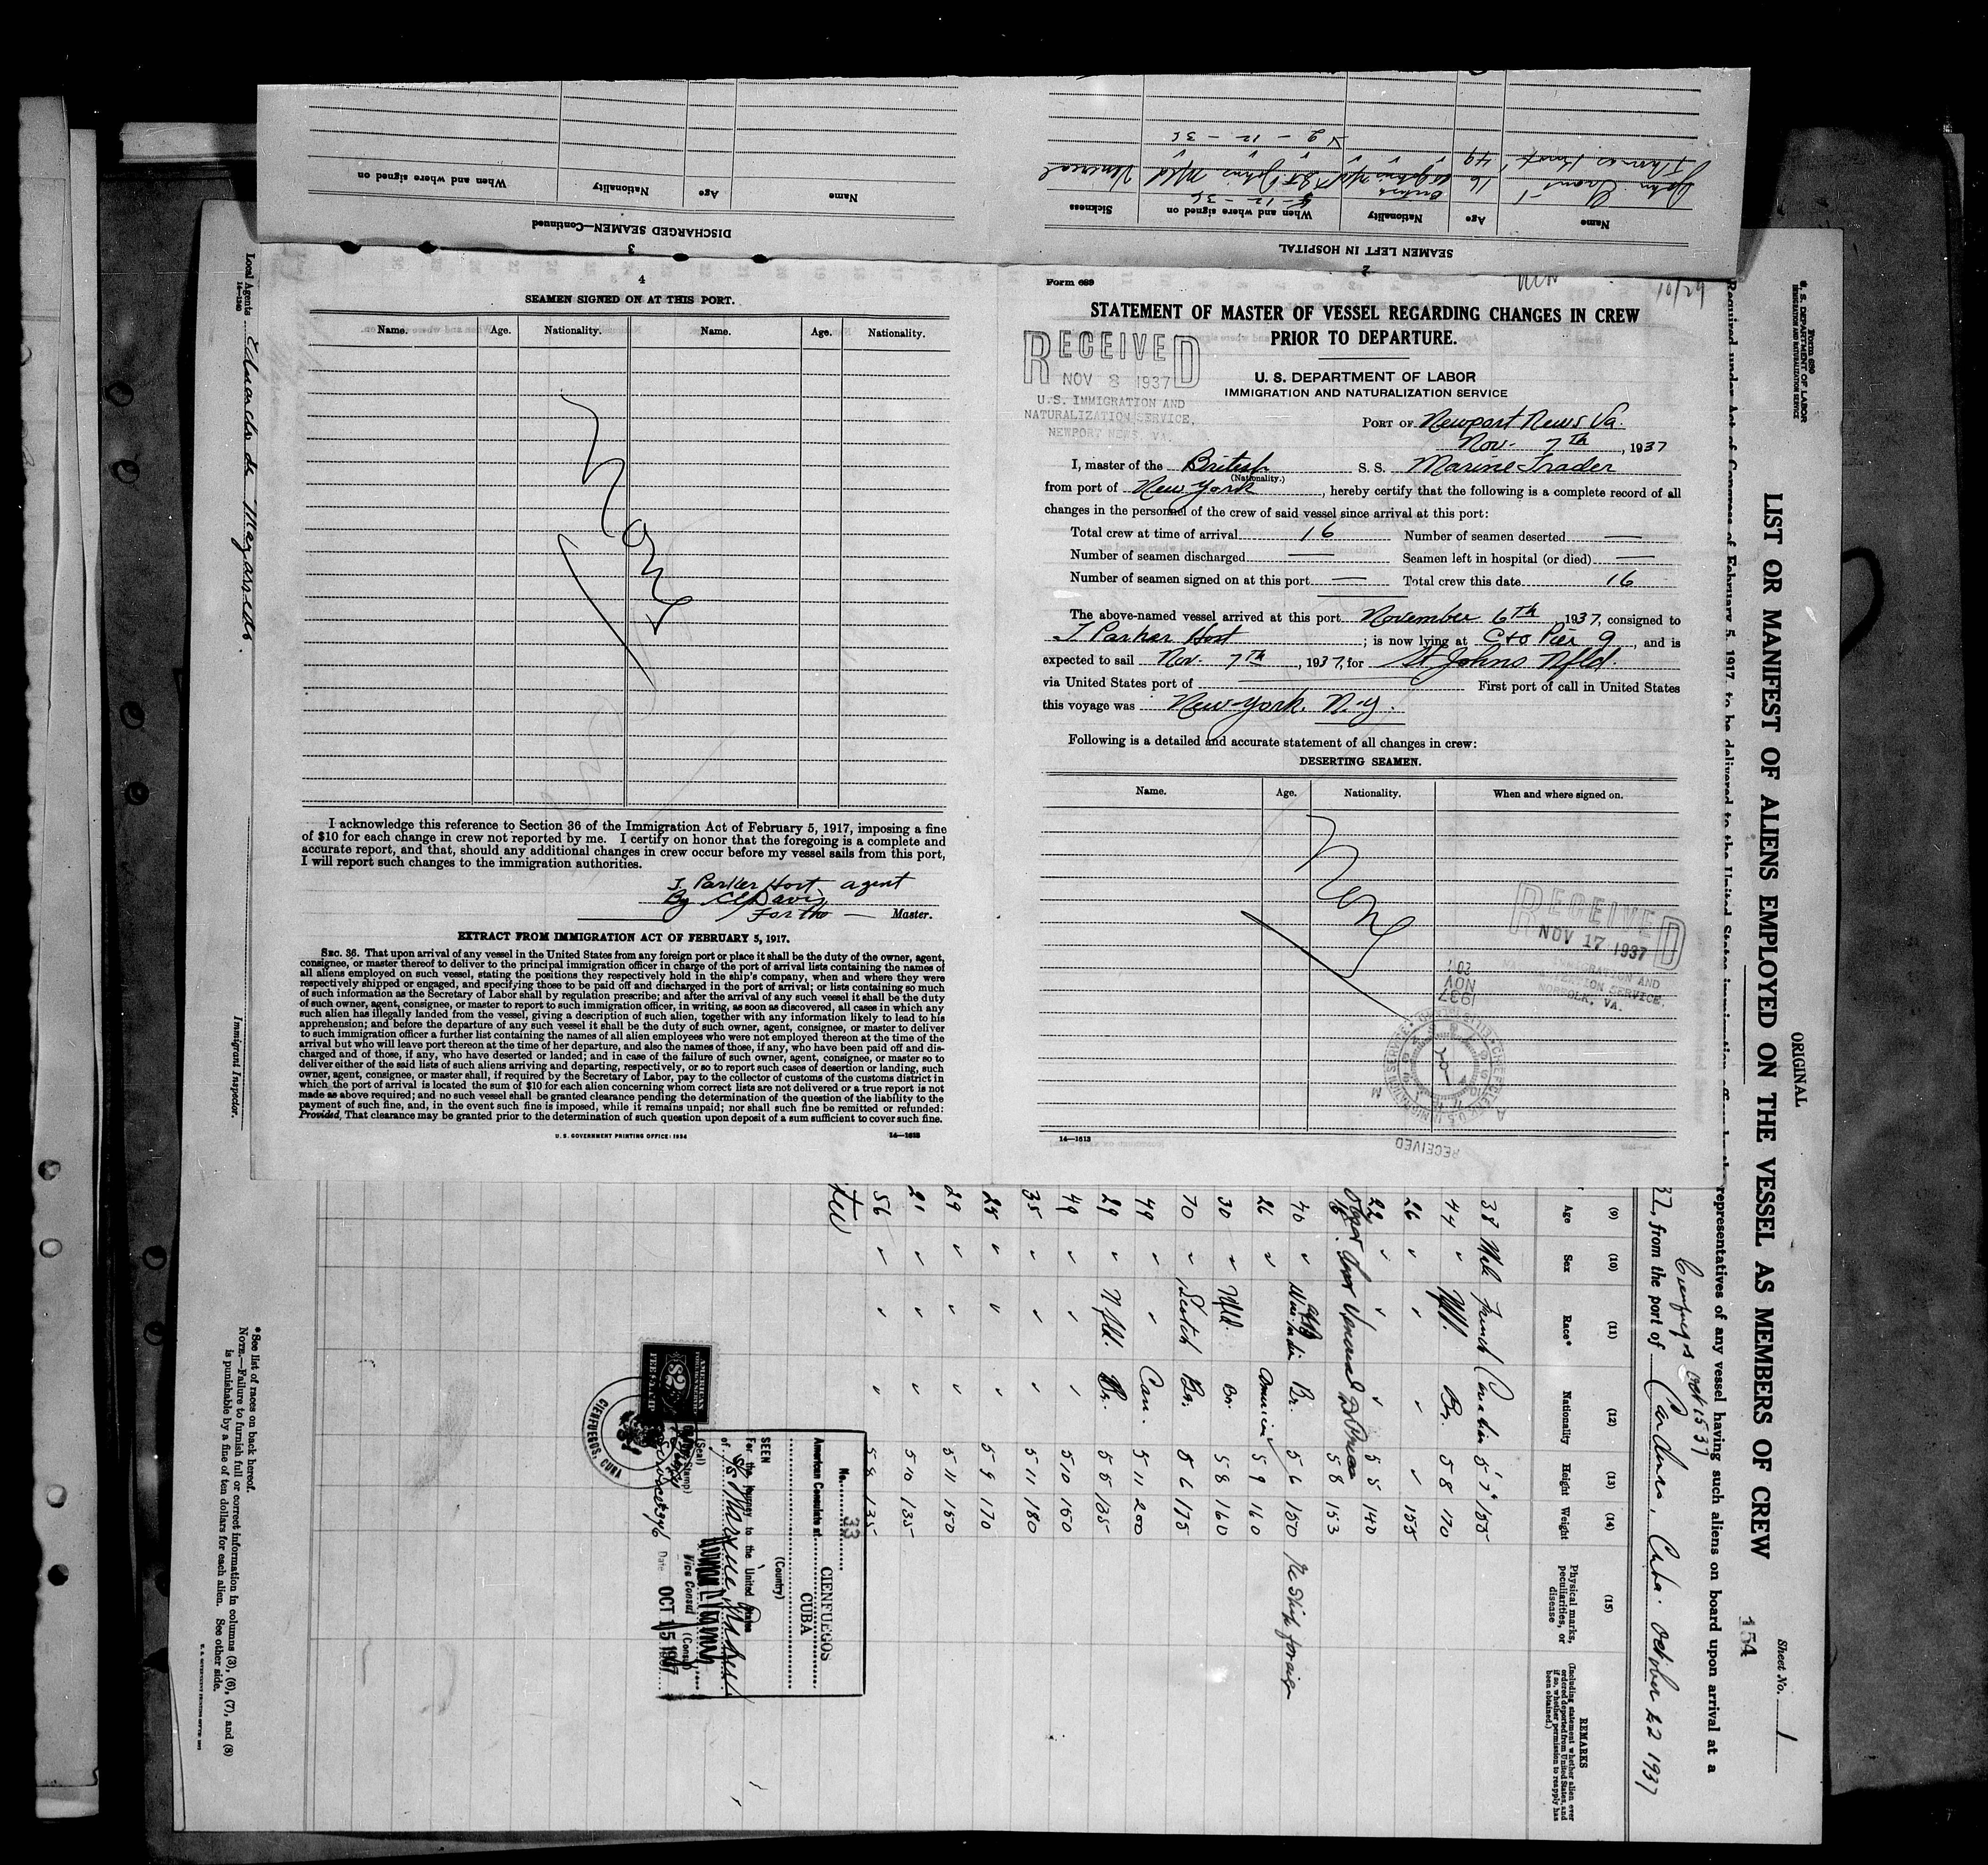 SEAMEN LEFT IN HOSPITAL
2
Name
Age
Nationality
When and where signed on
Sickness
John
16
British
5-12-36
St Johns Nfld
Venereal
Thomas
49
9-12-36
3
DISCHARGED SEAMEN—Continued
Name
Age
Nationality
When and where signed on
4
SEAMEN SIGNED ON AT THIS PORT.
Name.
Age.
Nationality.
Name.
Age.
Nationality.
None
I acknowledge this reference to Section 36 of the Immigration Act of February 5, 1917, imposing a fine
of $10 for each change in crew not reported by me. I certify on honor that the foregoing is a complete and
accurate report, and that, should any additional changes in crew occur before my vessel sails from this port,
I will report such changes to the immigration authorities.
T. Parker Host, agent
By CC Davis
For the — Master.
EXTRACT FROM IMMIGRATION ACT OF FEBRUARY 5, 1917.
SEC. 36. That upon arrival of any vessel in the United States from any foreign port or place it shall be the duty of the owner, agent,
consignee, or master thereof to deliver to the principal immigration officer in charge of the port of arrival lists containing the names of
all aliens employed on such vessel, stating the positions they respectively hold in the ship's company, when and where they were
respectively shipped or engaged, and specifying those to be paid off and discharged in the port of arrival; or lists containing so much
of such information as the Secretary of Labor shall by regulation prescribe; and after the arrival of any such vessel it shall be the duty
of such owner, agent, consignee, or master to report to such immigration officer, in writing, as soon as discovered, all cases in which any
such alien has illegally landed from the vessel, giving a description of such alien, together with any information likely to lead to his
apprehension; and before the departure of any such vessel it shall be the duty of such owner, agent, consignee, or master to deliver
to such immigration officer a further list containing the names of all alien employees who were not employed thereon at the time of the
arrival but who will leave port thereon at the time of her departure, and also the names of those, if any, who have been paid off and dis-
charged and of those, if any, who have deserted or landed; and in case of the failure of such owner, agent, consignee, or master so to
deliver either of the said lists of such aliens arriving and departing, respectively, or so to report such cases of desertion or landing, such
owner, agent, consignee, or master shall, if required by the Secretary of Labor, pay to the collector of customs of the customs district in
which the port of arrival is located the sum of $10 for each alien concerning whom correct lists are not delivered or a true report is not
made as above required; and no such vessel shall be granted clearance pending the determination of the question of the liability to the
payment of such fine, and, in the event such fine is imposed, while it remains unpaid; nor shall such fine be remitted or refunded:
Provided, That clearance may be granted prior to the determination of such question upon deposit of a sum sufficient to cover such fine.
U. S. GOVERNMENT PRINTING OFFICE: 1934
14—1613
Form 689
10/29
STATEMENT OF MASTER OF VESSEL REGARDING CHANGES IN CREW
PRIOR TO DEPARTURE.
RECEIVED
NOV 8 1937
U.S. IMMIGRATION AND
NATURALIZATION SERVICE,
NEWPORT NEWS, VA.
U. S. DEPARTMENT OF LABOR
IMMIGRATION AND NATURALIZATION SERVICE
PORT OF Newport News Va.
Nov. 7th, 1937
I, master of the British S. S. Marine Trader
(Nationality.)
from port of New York, hereby certify that the following is a complete record of all
changes in the personnel of the crew of said vessel since arrival at this port:
Total crew at time of arrival 16 Number of seamen deserted —
Number of seamen discharged — Seamen left in hospital (or died) —
Number of seamen signed on at this port — Total crew this date 16
The above-named vessel arrived at this port November 6th, 1937, consigned to
T Parker Host; is now lying at C+O Pier 9, and is
expected to sail Nov. 7th, 1937, for St Johns Nfld.
via United States port of — First port of call in United States
this voyage was New York, N.Y.
Following is a detailed and accurate statement of all changes in crew:
DESERTING SEAMEN.
Name.
Age.
Nationality.
When and where signed on.
None
RECEIVED
NOV 17 1937
NORFOLK, VA.
NOV
1937
RECEIVED
14—1613
Form 680
U. S. DEPARTMENT OF LABOR
IMMIGRATION AND NATURALIZATION SERVICE
ORIGINAL
Sheet No. 1
LIST OR MANIFEST OF ALIENS EMPLOYED ON THE VESSEL AS MEMBERS OF CREW
154
Required under Act of Congress of February 5, 1917, to be delivered to the United States immigration
representatives of any vessel having such aliens on board upon arrival at a
Cienfuegos Oct 15 37
37, from the port of Cardenas, Cuba. October 22 1937
(9)
Age
(10)
Sex
(11)
Race*
(12)
Nationality
(13)
Height
(14)
Weight
(15)
Physical marks,
peculiarities, or
disease
REMARKS
(Including statement whether alien ever
ordered deported from United States, and
if so, whether permission to reapply has
been obtained.)
38 Male French Canadian 5' 7" 155
44 " Nfld. Br. 5 8 170
26 " " " 155
22 " " " 5 5 140
5 8 153
40 " Br. 5 6 150
26 " 5 9 160
30 " Nfld. Br. 5 8 160
70 " Scotch Br. 5 6 175
49 " " Can. 5 11 200
29 " Nfld. Br. 5 5 135
49 " " " 5 10 150
35 " " " 5 11 180
25 " " " 5 9 170
29 " " " 5 11 150
21 " " " 5 10 135
56 " " " 5 8 135
No. 33
American Consulate at CIENFUEGOS
CUBA
(Country)
SEEN
For the journey to the United States
of
Vice Consul
(Consul)
(Seal)
Date OCT 15 1937
AMERICAN
FOREIGN SERVICE
$2
FEE STAMP
CIENFUEGOS, CUBA
*See list of races on back hereof.
NOTE.—Failure to furnish full or correct information in columns (3), (6), (7), and (8)
is punishable by a fine of ten dollars for each alien. See other side.
Local Agents Eduardo de Mazarredo.
14-1240
Immigrant Inspector.